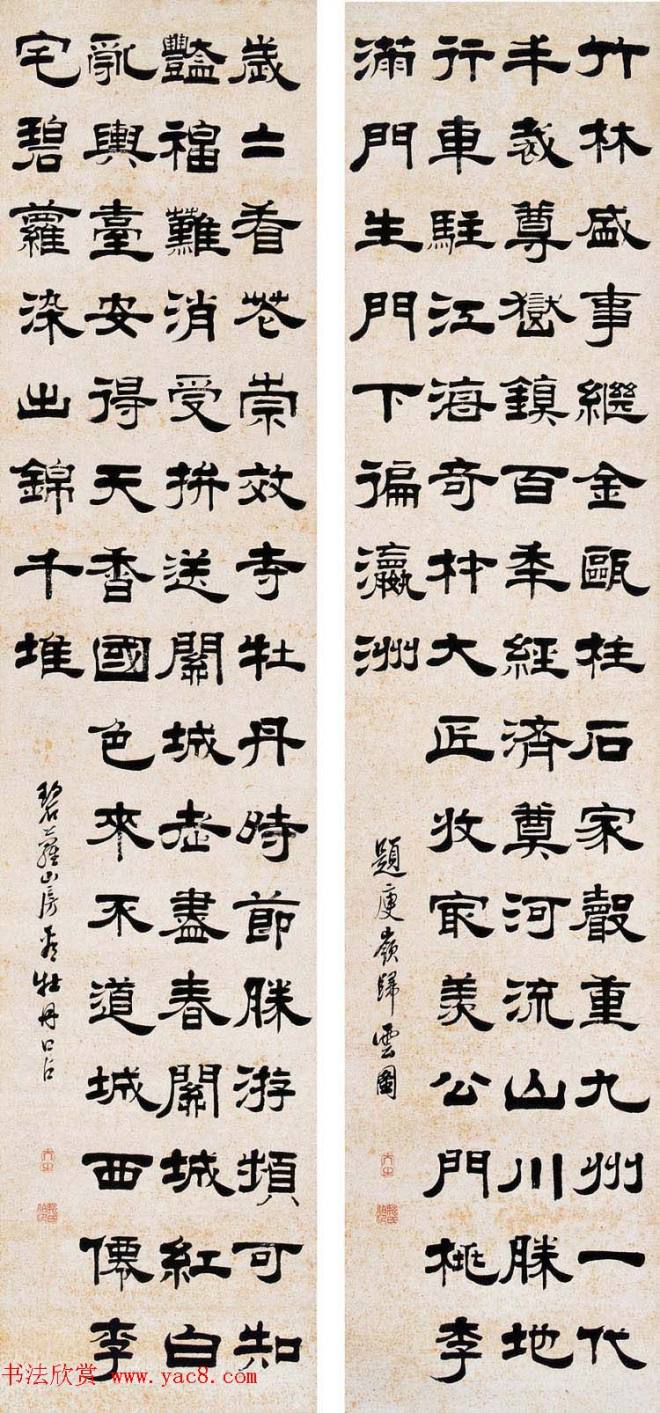 竹林盛事繼金甌柱石家聲重九州一代
丰裁尊嶽鎮百年經濟奠河流山川勝地
行車駐江海奇材大匠收最羨公門桃李
滿門生門下徧瀛洲
題庾嶺歸雲圖
歲二看花崇效寺牡丹時節勝游頻可知
豔福難消受拚送關城老盡春關城紅白
亂輿臺安得天香國色來不道城西僊李
宅碧蘿染出錦千堆
碧蘿山房看牡丹口占
书法欣赏 www.yac8.com